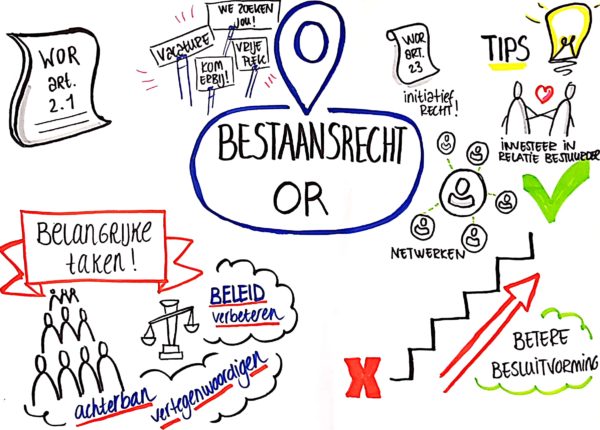 WOR
art.
2.1
VACATURE
WE ZOEKEN
JOU!
KOM
ERBIJ!
VRIJE
PLEK
WOR
ART.
23
initiatief
RECHT!
TIPS
INVESTEER IN
RELATIE BESTUURDER
BESTAANSRECHT
OR
NETWERKEN
BELANGRIJKE
taken!
BELEID
verbeteren
achterban
vertegenwoordigen
X
BETERE
BESLUITVORMING